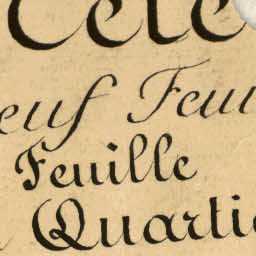 Cele
euf Feui
Feuille
Quartie